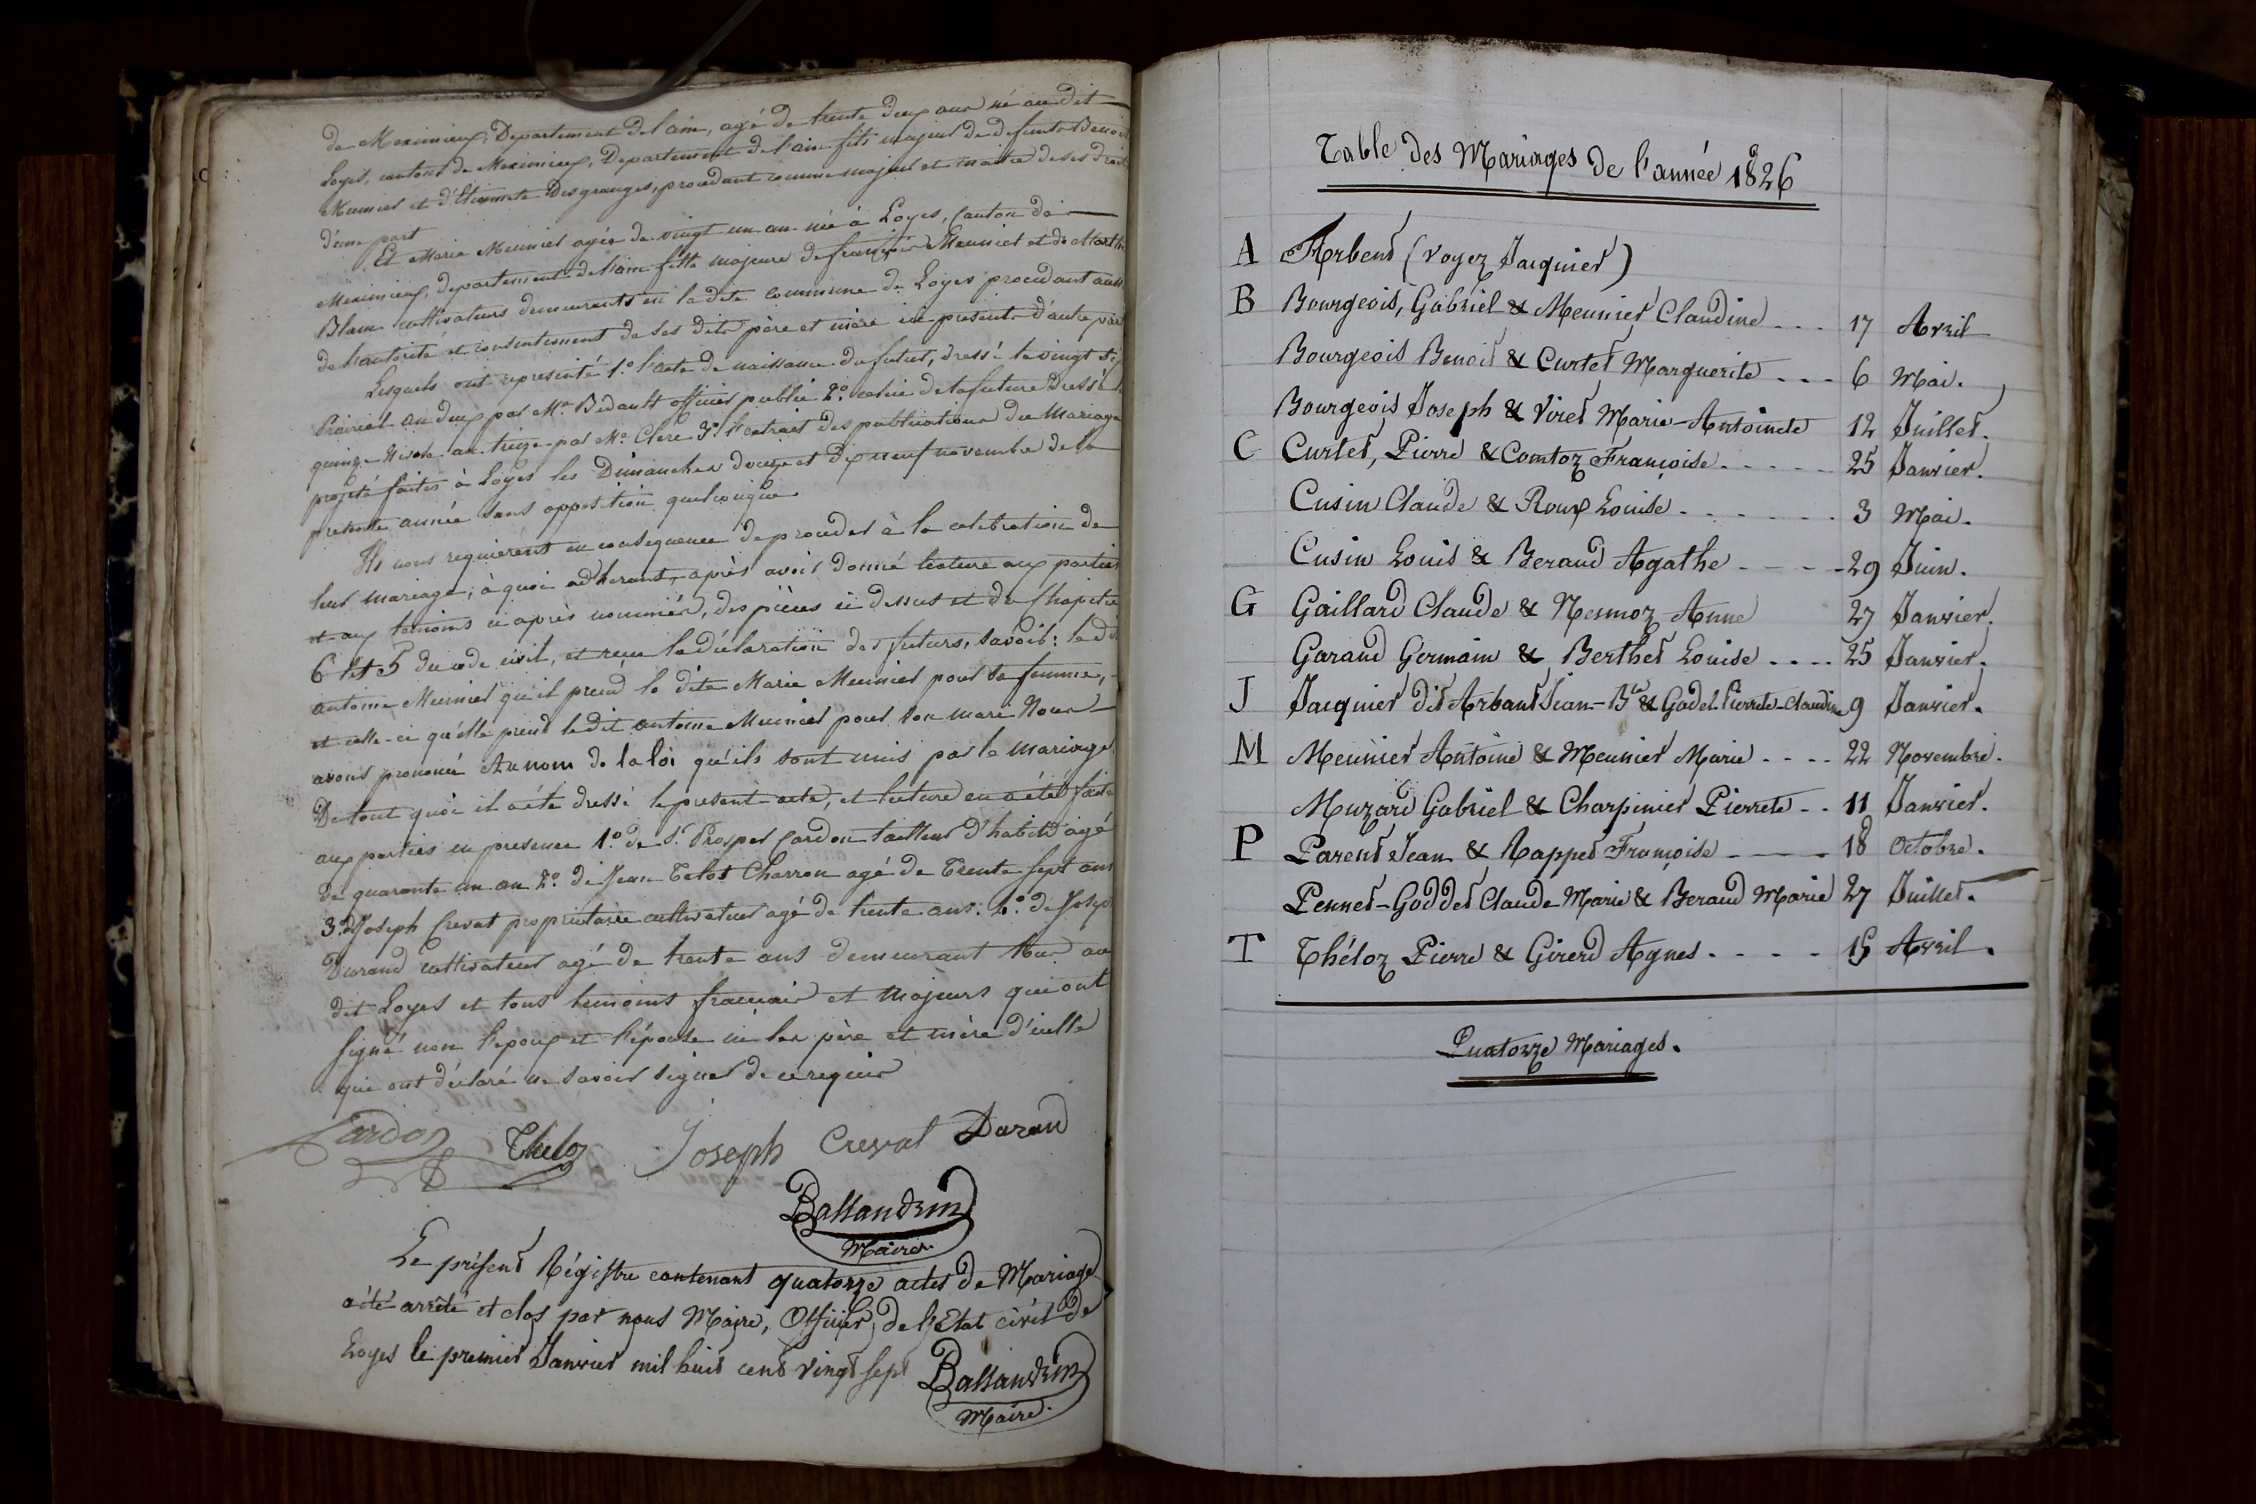 de Meximieux, Departement de l'ain, agé de trente deux ans né au dit
Loyes, canton de Meximieux, Departement de l'ain fils majeur de defunts Benoit
Meunier et d'Etiennete Desgranges, procedant comme majeur et maitre de ses droits
d'une part
Et Marie Meunier agée de vingt un an née à Loyes, canton de
Meximieux, departement de l'ain fille majeure de françois Meunier et de Marthe
Blanc cultivateurs demeurants en la dite commune de Loyes procedant sous
de l'autorité et consentement de ses dits père et mère ici presents d'autre part
Lesquels ont representé 1.º l'acte de naissance du futur, dressé le vingt
Prairial an deux par Mr. Bidault officier public 2.º celui de la future dressé le
quinze Nivose an treize par Mr. Clerc 3.º l'extrait des publications du Mariage
projeté faites à Loyes les Dimanches douze et dix neuf novembre de la
presente année sans opposition quelconque
Ils nous requierent en consequence de proceder à la celebration de
leur mariage; à quoi adherant, après avoir donné lecture aux parties
et aux temoins ci après nommés, des pièces ci dessus et du Chapitre
6 tit 5 du code civil, et reçu la déclaration des futurs, savoir: le dit
antoine Meunier qu'il prend la dite Marie Meunier pour sa femme,
et celle-ci qu'elle prend le dit antoine Meunier pour son mari Nous
avons prononcé Au nom de la loi qu'ils sont unis par le mariage
De tout quoi il a été dressé le present acte, et lecture en a été faite
aux parties en presence 1.º de Sr. Prosper Cardon tailleur d'habits agé
de quarante un an 2.º de Jean Telot Charron agé de Trente sept ans
3.º de Joseph Crevat proprietaire cultivateur agé de trente ans: 4.º de Joseph
Durand cultivateur agé de trente ans demeurant tous au
dit Loyes et tous temoins français et majeurs qui ont
signé non l'epoux et l'épouse ni les père et mère d'icelle
qui ont déclaré ne savoir signer de ce requis
Cardon Theloz Joseph Crevat Durand
Ballandrin
Maire.
Le présent Régistre contenant quatorze actes de Mariage
a été arrêté et clos par nous Maire, Officier de l'Etat civil de
Loyes le premier Janvier mil huit cent vingt sept Ballandrin
Maire.
Table des Mariages de l'année 1826
A Arbent (voyez Jacquier)
B Bourgeois, Gabriel & Meunier Claudine ... 17 Avril
Bourgeois Benoit & Curtet Marguerite ... 6 Mai.
Bourgeois Joseph & Viret Marie-Antoinete 12 Juillet.
C Curtet, Pierre & Comtoz Françoise ..... 25 Janvier.
Cusin Claude & Roux Louise ....... 3 Mai.
Cusin Louis & Beraud Agathe ----- 29 Juin.
G Gaillard Claude & Nesmoz Anne 27 Janvier.
Garaud Germain & Berthet Louise .... 25 Janvier.
J Jacquier dit Arbant Jean-Bte & Godet Pierrete-Claudine 9 Janvier.
M Meunier Antoine & Meunier Marie .... 22 Novembre.
Muzard Gabriel & Charpinier Pierrete .. 11 Janvier.
P Parent Jean & Rappet Françoise ---- 18 Octobre.
Pennet-Goddet Claude Marie & Beraud Marie 27 Juillet.
T Théloz Pierre & Girerd Agnes ..... 15 Avril.
Quatorze Mariages.